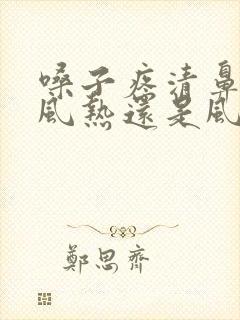 嗓子疼清鼻
風熱還是風
鄭思齊